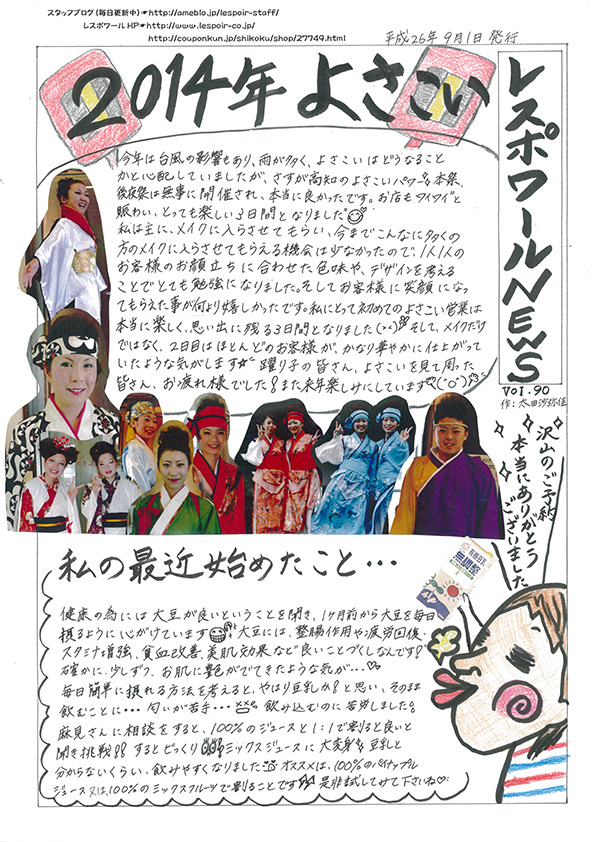 スタッフブログ(毎日更新中)☛http://ameblo.jp/lespoir-staff/
レスポワールHP☛http://www.lespoir-co.jp/
http://couponkun.jp/shikoku/shop/27749.html
平成26年9月1日発行
2014年よさこい
レスポワールNEWS
Vol.90
作:太田沙弥佳
今年は台風の影響もあり、雨が多く、よさこいはどうなること
かと心配していましたが、さすが高知のよさこいパワー!!本祭、
後夜祭は無事に開催され、本当に良かったです。お店もワイワイと
賑わい、とっても楽しい3日間となりました
私は主に、メイクに入らさせてもらい、今までこんなに多くの
方のメイクに入らさせてもらえる機会は少なかったので、1人1人の
お客様のお顔立ちに合わせた色味や、デザインを考える
ことでとても勉強になりました。そしてお客様に笑顔になっ
てもらえた事が何より嬉しかったです。私にとって初めてのよさこい営業は
本当に楽しく、思い出に残る3日間となりました(>▽<)そして、メイクだけ
ではなく、2日目はほとんどのお客様が、かなり華やかに仕上がって
いたような気がします 踊り子の皆さん、よさこいを見て周った
皆さん、お疲れ様でした!また来年楽しみにしています(^o^)
沢山のご予約
本当にありがとう
ございました
私の最近始めたこと…
無調整
健康の為には大豆が良いということを聞き、1ヶ月前から大豆を毎日
摂るように心がけています 大豆には、整腸作用や疲労回復・
スタミナ増強、貧血改善、美肌効果など良いことづくしなんです!
確かに、少しずつ、お肌に艶がでてきたような気が…♡
毎日簡単に摂れる方法を考えると、やはり豆乳か!と思い、そのまま
飲むことに…匂いが苦手… 飲み込むのに苦労しました。
麻見さんに相談をすると、100%のジュースと1:1で割ると良いと
聞き挑戦!!するとビックリ ミックスジュースに大変身 豆乳と
分からないくらい、飲みやすくなりました オススメは、100%のパイナップル
ジュース又は100%のミックスフルーツで割ることです 是非試してみて下さいね♡